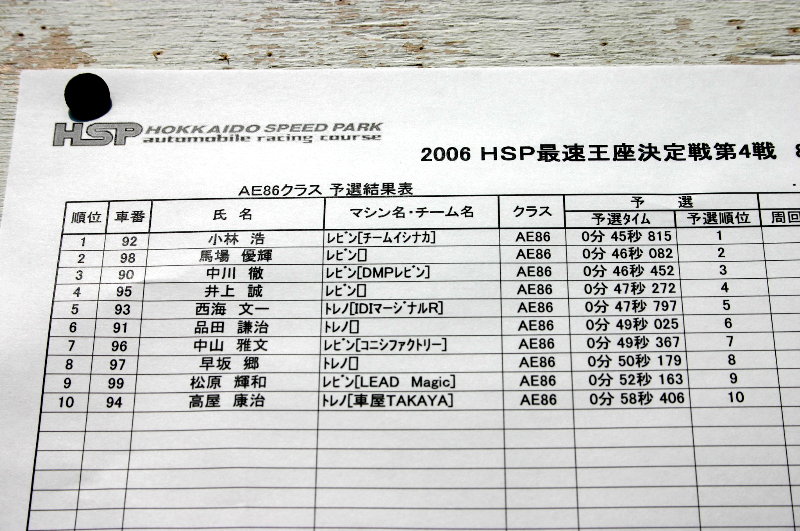 HSP HOKKAIDO SPEED PARK
automobile racing course
2006 HSP最速王座決定戦第4戦
AE86クラス 予選結果表
順位 車番 氏名 マシン名・チーム名 クラス 予選 周回
予選タイム 予選順位
1 92 小林 浩 レビン[チームイシナカ] AE86 0分 45秒 815 1
2 98 馬場 優輝 レビン[] AE86 0分 46秒 082 2
3 90 中川 徹 レビン[DMPレビン] AE86 0分 46秒 452 3
4 95 井上 誠 レビン[] AE86 0分 47秒 272 4
5 93 西海 文一 トレノ[IDIマージナルR] AE86 0分 47秒 797 5
6 91 品田 謙治 トレノ[] AE86 0分 49秒 025 6
7 96 中山 雅文 レビン[コニシファクトリー] AE86 0分 49秒 367 7
8 97 早坂 郷 トレノ[] AE86 0分 50秒 179 8
9 99 松原 輝和 レビン[LEAD Magic] AE86 0分 52秒 163 9
10 94 高屋 康治 トレノ[車屋TAKAYA] AE86 0分 58秒 406 10